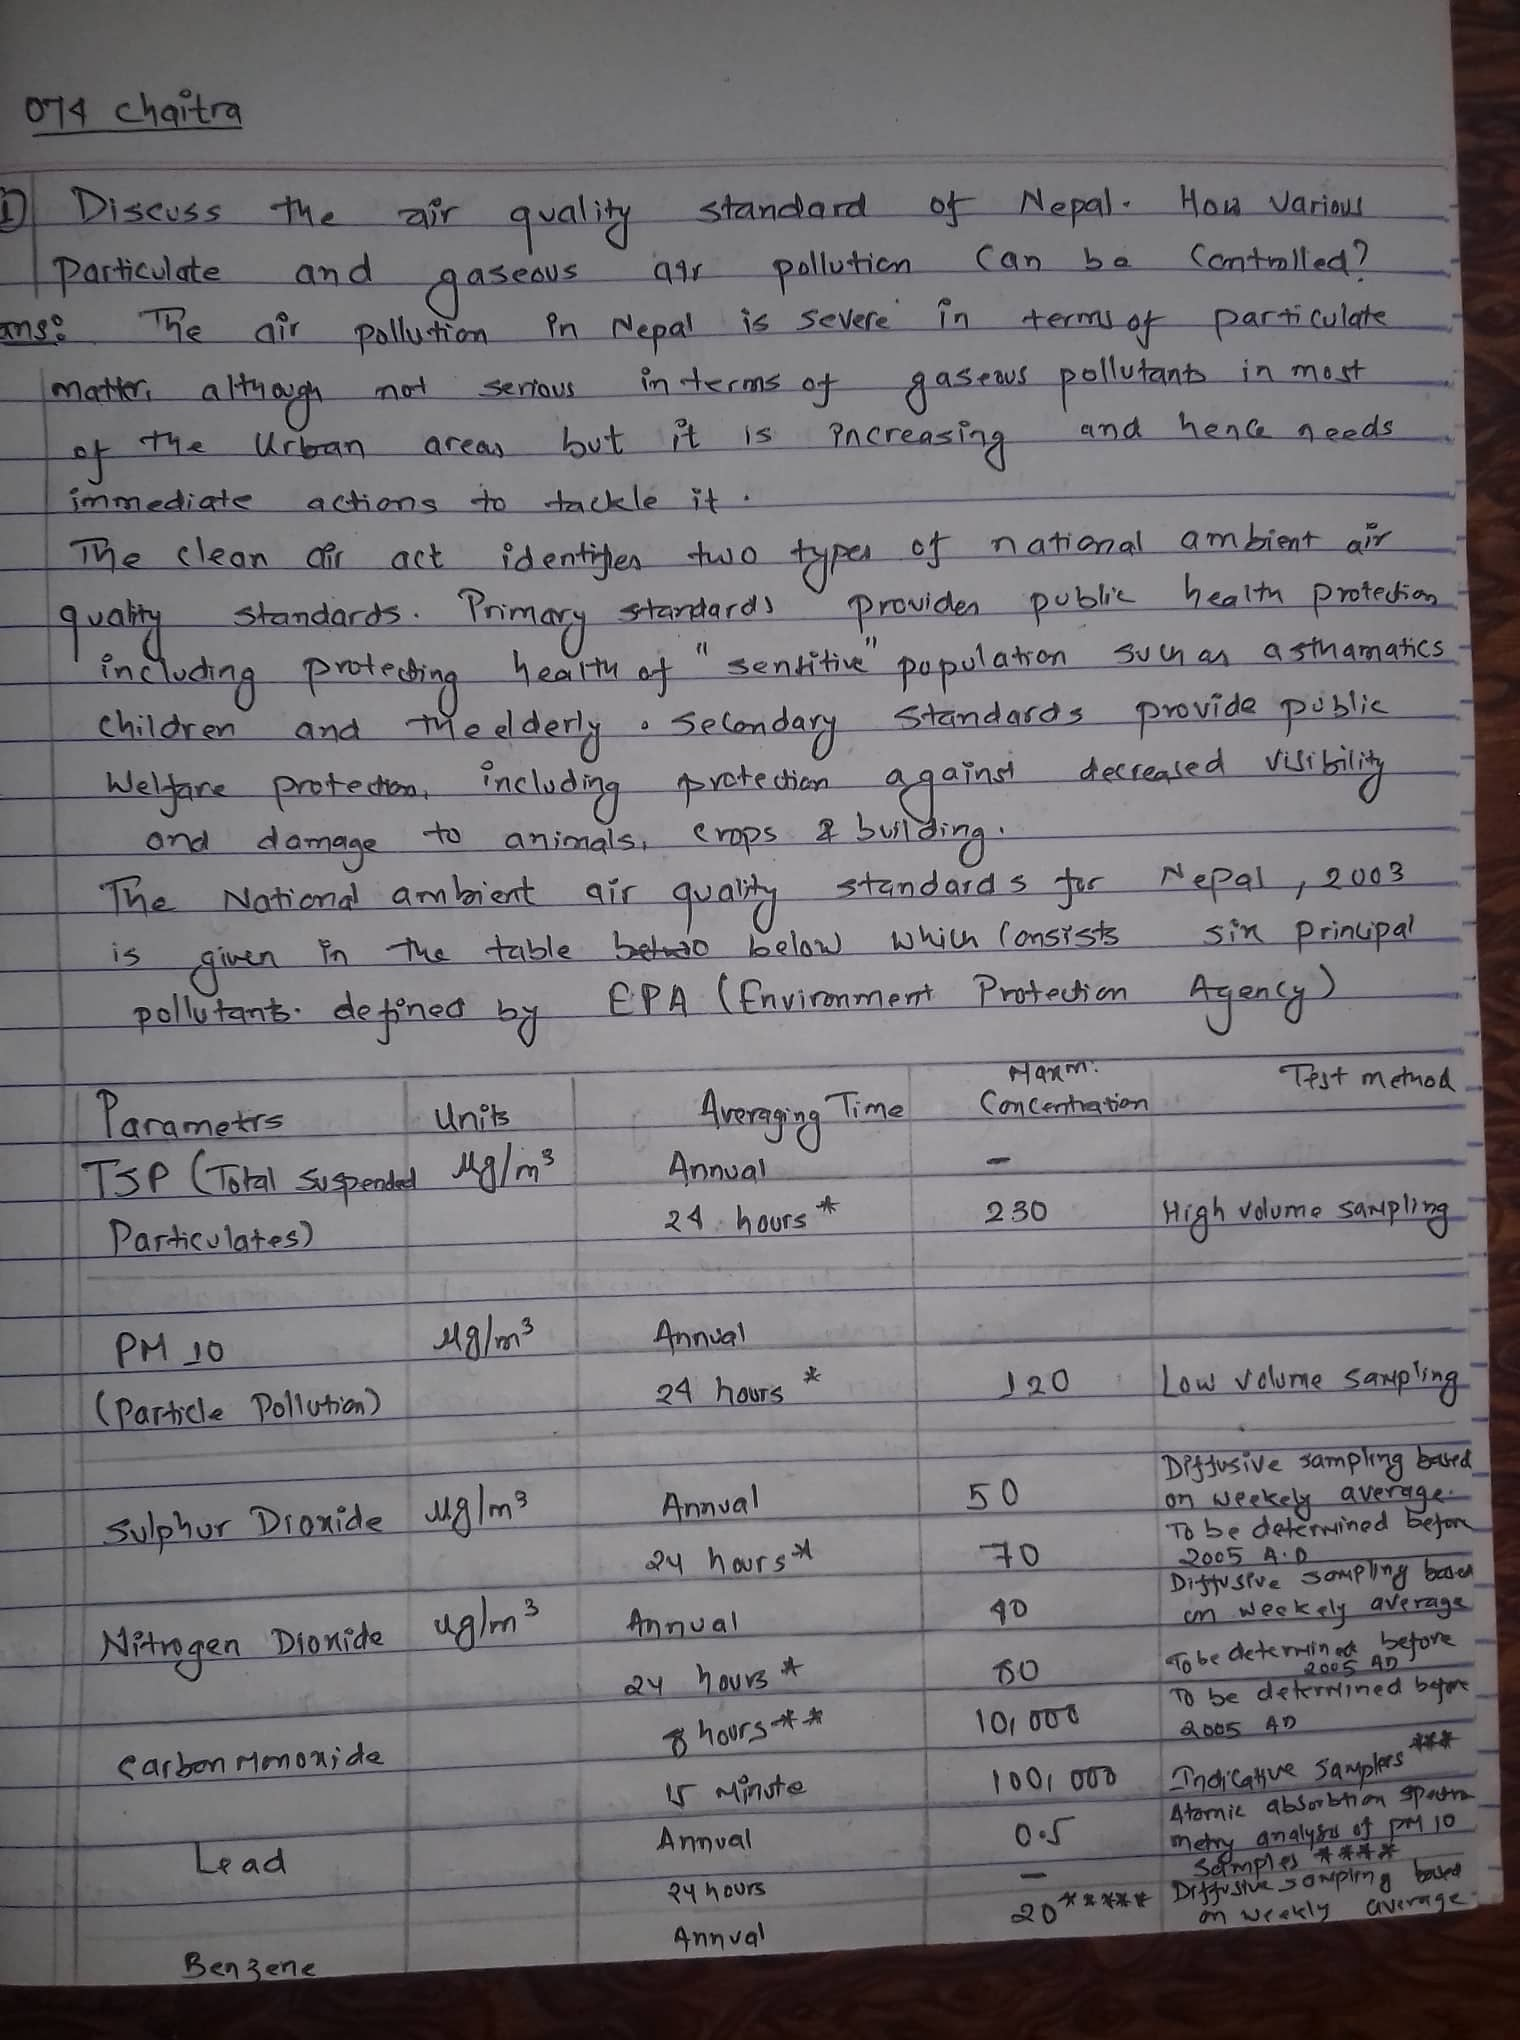 074 Chaitra
1) Discuss the air quality standard of Nepal. How various
particulate and gaseous air pollution can be controlled?
ans: The air pollution in Nepal is severe in terms of particulate
matter, although not serious in terms of gaseous pollutants in most
of the urban areas but it is increasing and hence needs
immediate actions to tackle it.
The clean air act identifies two types of national ambient air
quality standards. Primary standards provides public health protection
including protecting health of "sensitive" population such as asthamatics
children and the elderly. Secondary standards provide public
Welfare protection, including protection against decreased visibility
and damage to animals, crops & building.
The National ambient air quality standards for Nepal, 2003
is given in the table below which consists six principal
pollutants. defined by EPA (Environment Protection Agency)
Parametrs Units Averaging Time Maxm. Concentration Test method
TSP (Total Suspended µg/m³ Annual -
Particulates) 24 hours * 230 High volume sampling
PM 10 µg/m³ Annual
(Particle Pollution) 24 hours * 120 Low volume sampling
Diffusive sampling based
Sulphur Dioxide µg/m³ Annual 50 on weekely average.
To be determined before
24 hours * 70 2005 A.D
Diffusive sampling based
Nitrogen Dioxide ug/m³ Annual 40 on weekely average
24 hours * 80 To be determined before
2005 AD
8 hours ** 10,000 To be determined before
2005 AD
Carbon Monoxide
15 Minute 100,000 Indicative samplers ***
Lead Annual 0.5 Atomic absorbtion spectro
metry analysis of PM 10
samples ****
24 hours -
Benzene Annual 20 ***** Diffusive sampling based
on weekly average.